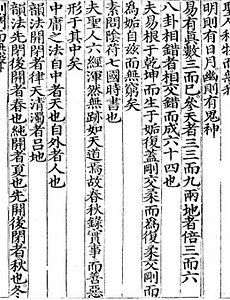 聖人利物而無我
明則有日月幽則有鬼神
易有眞數三而已參天者三三而九兩地者倍三而六
八卦相錯者相交錯而成六十四也
夫易根于乾坤而生于姤復蓋剛交柔而爲復柔交剛而
爲姤自茲而無窮矣
素問陰符七國時書也
夫聖人六經渾然無跡如天道焉故春秋錄實事而善惡
形于其中矣
中庸之法自中者天也自外者人也
韻法開閉者律天清濁者呂地
韻法先閉後開者春也純開者夏也先開後閉者秋也冬
則閉而無聲